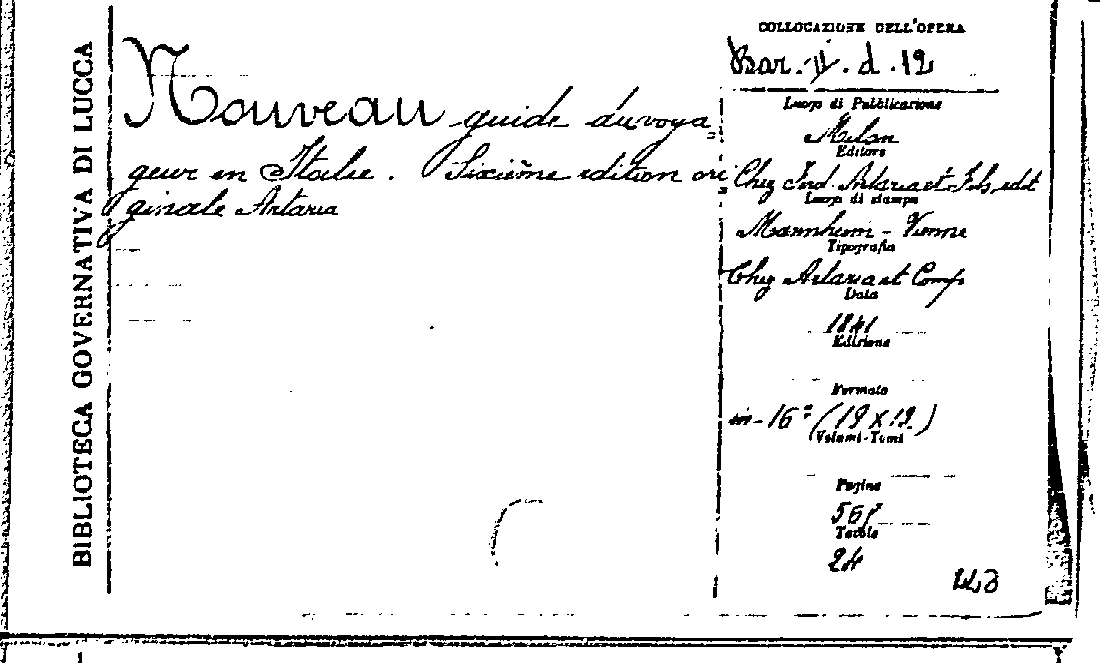 BIBLIOTECA GOVERNATIVA DI LUCCA
Nouveau guide du voya
geur en Italie. Sixième edition ori
ginale Artaria
COLLOCAZIONE DELL'OPERA
Bar. II. d. 12
Luogo di Pubblicazione
Milan
Editore
Chez Ferd. Artaria et Fils, edit
Luogo di stampa
Mannheim - Vienne
Tipografia
Chez Artaria et Comp
Data
1841
Edizione
Formato
in-16° (19 x 12)
Volumi-Tomi
Pagine
Tavole
24